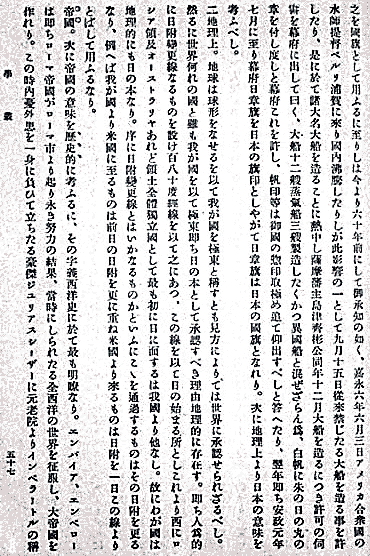 之を國旗として用ふるに至りしは今より六十年前にして御承知の如く、嘉永六年六月三日アメリカ合衆國の
水師提督ペルリ浦賀に來り國内沸騰したりしが此影響の一として九月十五日從來禁じたる大船を造る事を許
したり、是に於て諸大名大船を造ることに熱中し薩摩藩主島津齊彬公同年十二月大船を造るにつき許可の伺
書を幕府に出して曰く、大船十二艘蒸氣船三艘製造したくかつ異國船と混ぜざらん爲、白帆に朱の日の丸の
章を付し度しと幕府これを許し、帆印等は御國の惣印取極め追て仰出すべしと答へたり、翌年即ち安政元年
七月に至り幕府日章旗を日本の旗印としやがて日章旗は日本の國旗となれり。次に地理上より日本の意味を
考ふべし。
二地理上。地球は球形をなせるを以て我が國を極東と稱すとも見方によりては世界に承認せられざるべし。
然るに世界何れの國と雖も我が國を以て極東即ち日の本として承認すべき理由地理的に存在す。即ち人爲的
に日附變更線なるものを設け百八十度經線を以て之にあつ、この線を以て日の始まる所としこれより西にロ
シア領及オーストラリヤあれど領土全體獨立國として最も初に日に面するは我國より他なし。故にわが國は
地理的にも日の本なり。序に日附變更線とはいかなるものかといふにこゝを通過するものはその日附を更る
なり、例へば我が國より米國に至るものは前日の日附を更に重ね米國より來るものは日附を一日この線より
とばして用ふるなり。
帝國。次に帝國の意味を歷史的に考ふるに、その字義西洋史に於て最も明瞭なり。エンパイア、エンペロー
は即ちローマ帝國がローマ市より起り永き努力の結果、當時にしられたる全西洋の世界を征服し、大帝國を
作れり。この時内憂外患を一身に負ひて立ちたる豪傑ジュリアスシーザーに元老院よりインペラートルの稱
學叢
五十七